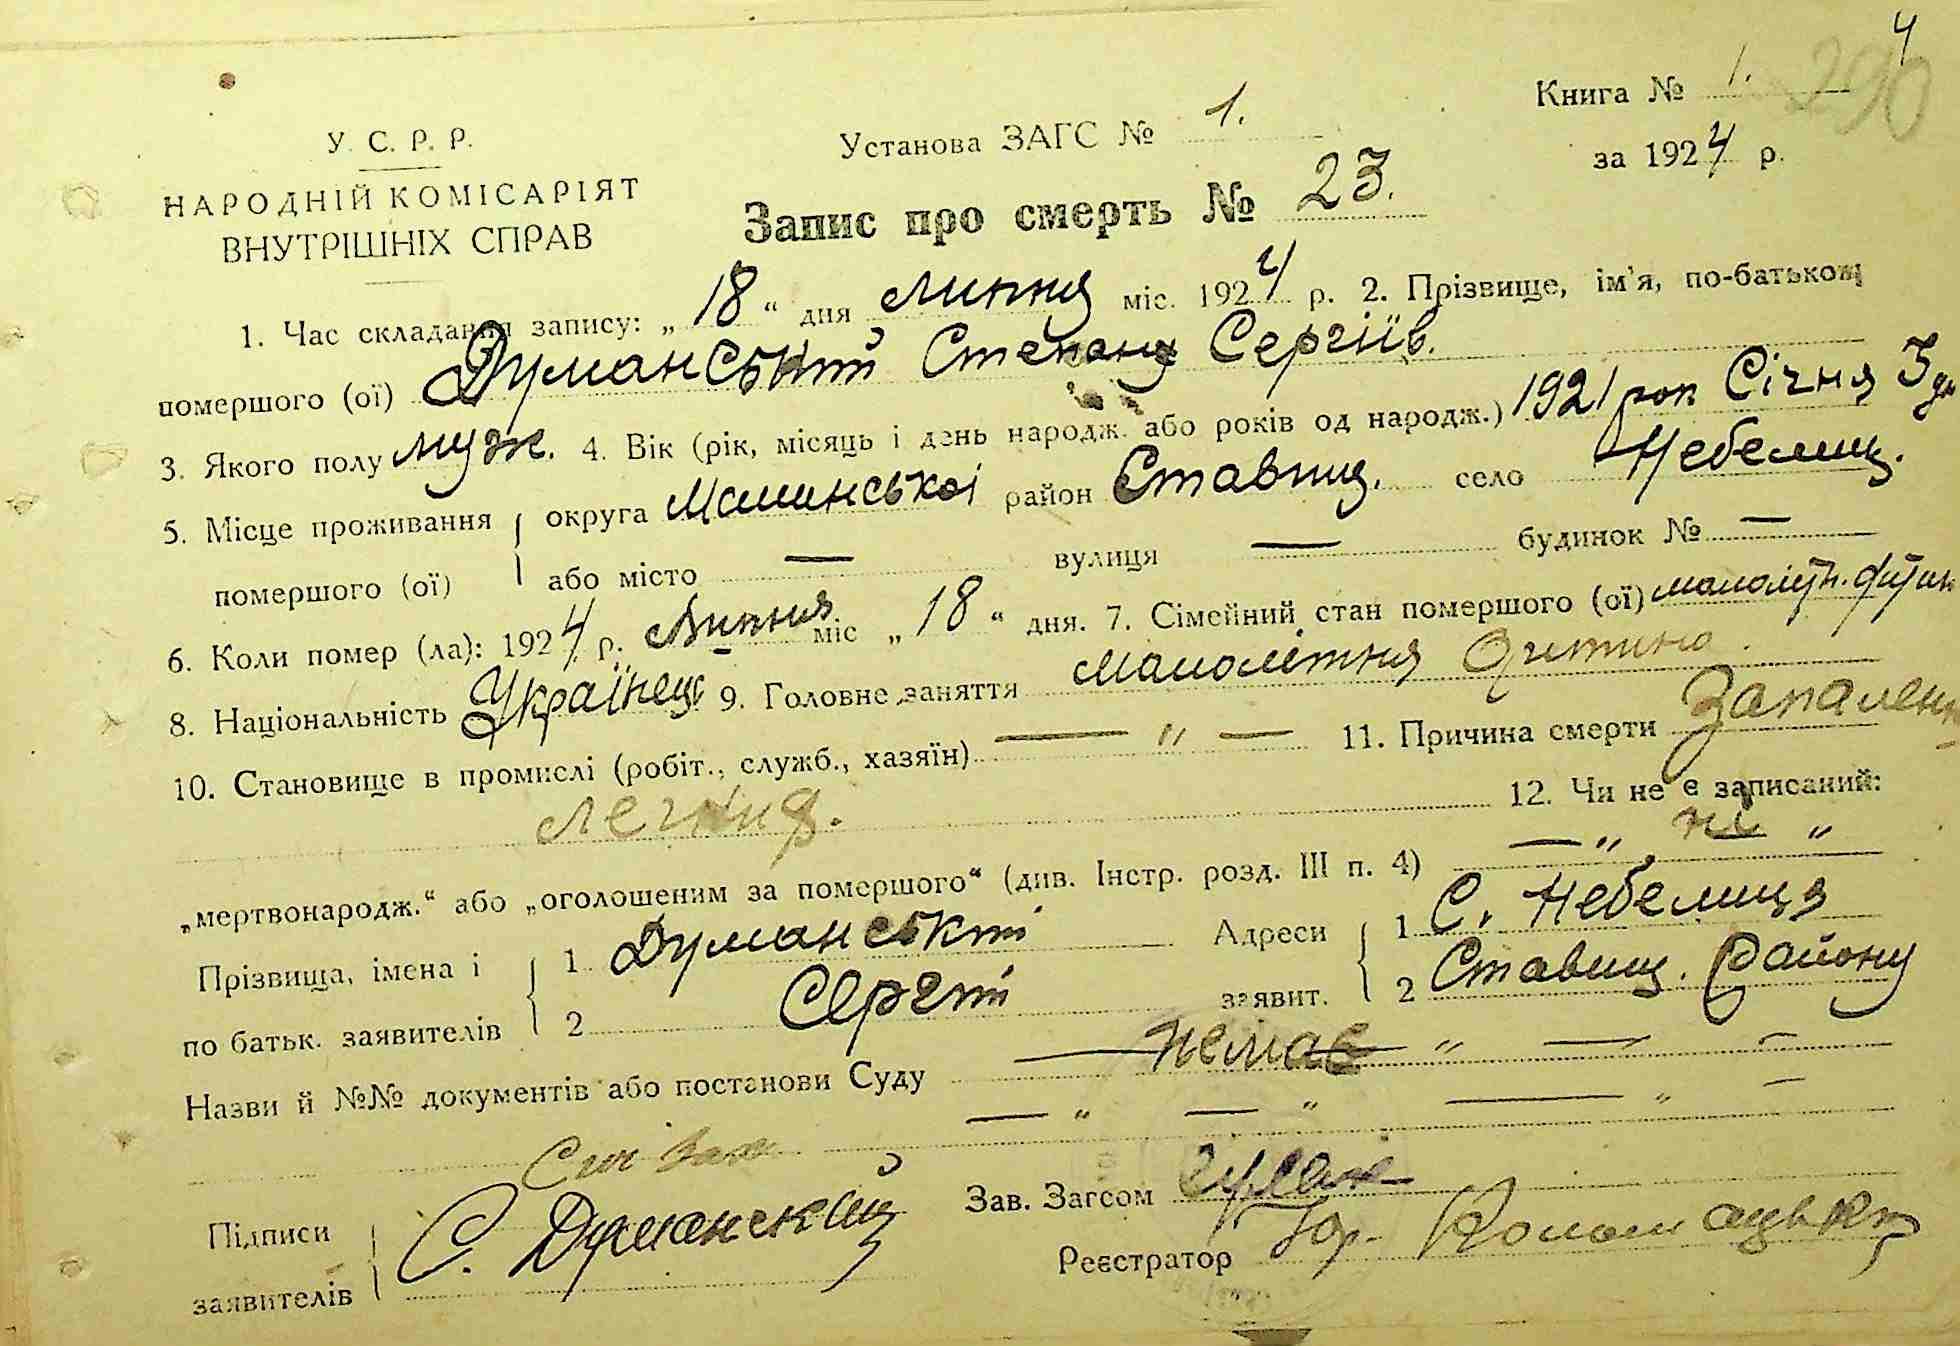 4
290
Книга № 1.
У. С. Р. Р.
Установа ЗАГС № 1.
за 1924 р.
НАРОДНІЙ КОМІСАРІЯТ
ВНУТРІШНІХ СПРАВ
Запис про смерть № 23.
1. Час складання запису: „18“ дня липня міс. 1924 р. 2. Прізвище, ім'я, по-батькові
помершого (ої) Думанський Степан Сергіїв.
3. Якого полу муж. 4. Вік (рік, місяць і день народж. або років од народж.) 1921 рок Січня 3 дн
5. Місце проживання округа Малинської район Ставищ. село Небелиц.
помершого (ої) або місто — вулиця — будинок № —
6. Коли помер (ла): 1924 р. Липня міс „18“ дня. 7. Сімейний стан помершого (ої) малолітн. дитин
8. Національність Українець 9. Головне заняття малолітня дитина.
10. Становище в промислі (робіт., служб., хазяїн) — „ — 11. Причина смерти Запален
легких. 12. Чи не є записаний:
„мертвонародж.“ або „оголошеним за помершого“ (див. Інстр. розд. III п. 4) — „ ні „
Прізвища, імена і 1 Думанський Адреси 1 С. Небелиця
по батьк. заявителів 2 Сергій заявит. 2 Ставищ. Району
Назви й №№ документів або постанови Суду — немає — „ — —
— „ — „ — „ —
Підписи С. Думанский Зав. Загсом
заявителів Реєстратор